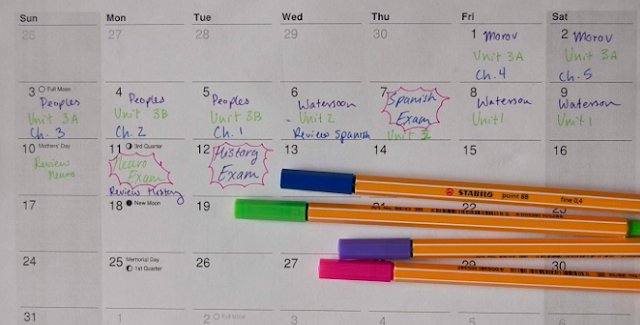 Sun Mon Tue Wed Thu Fri Sat
26 27 28 29 30 1 Morov 2 Morov
Unit 3A Unit 3A
Ch. 4 Ch. 5
3 Full Moon 4 5 6 7 8 9
Peoples Peoples Peoples Waterson Spanish Waterson Waterson
Unit 3A Unit 3B Unit 3B Unit 2 Exam Unit 1 Unit 1
Ch. 3 Ch. 2 Ch. 1 Review Spanish Unit 2
10 Mothers' Day 11 3rd Quarter 12 13 14 15 16
Review Neuro History
Neuro Exam Exam
Review History
17 18 New Moon 19 21 22 23
STABILO point 88 fine 0,4
24 25 Memorial Day 26 27 29 30
1st Quarter
31 1 2 Full Moon 3 4 5 6